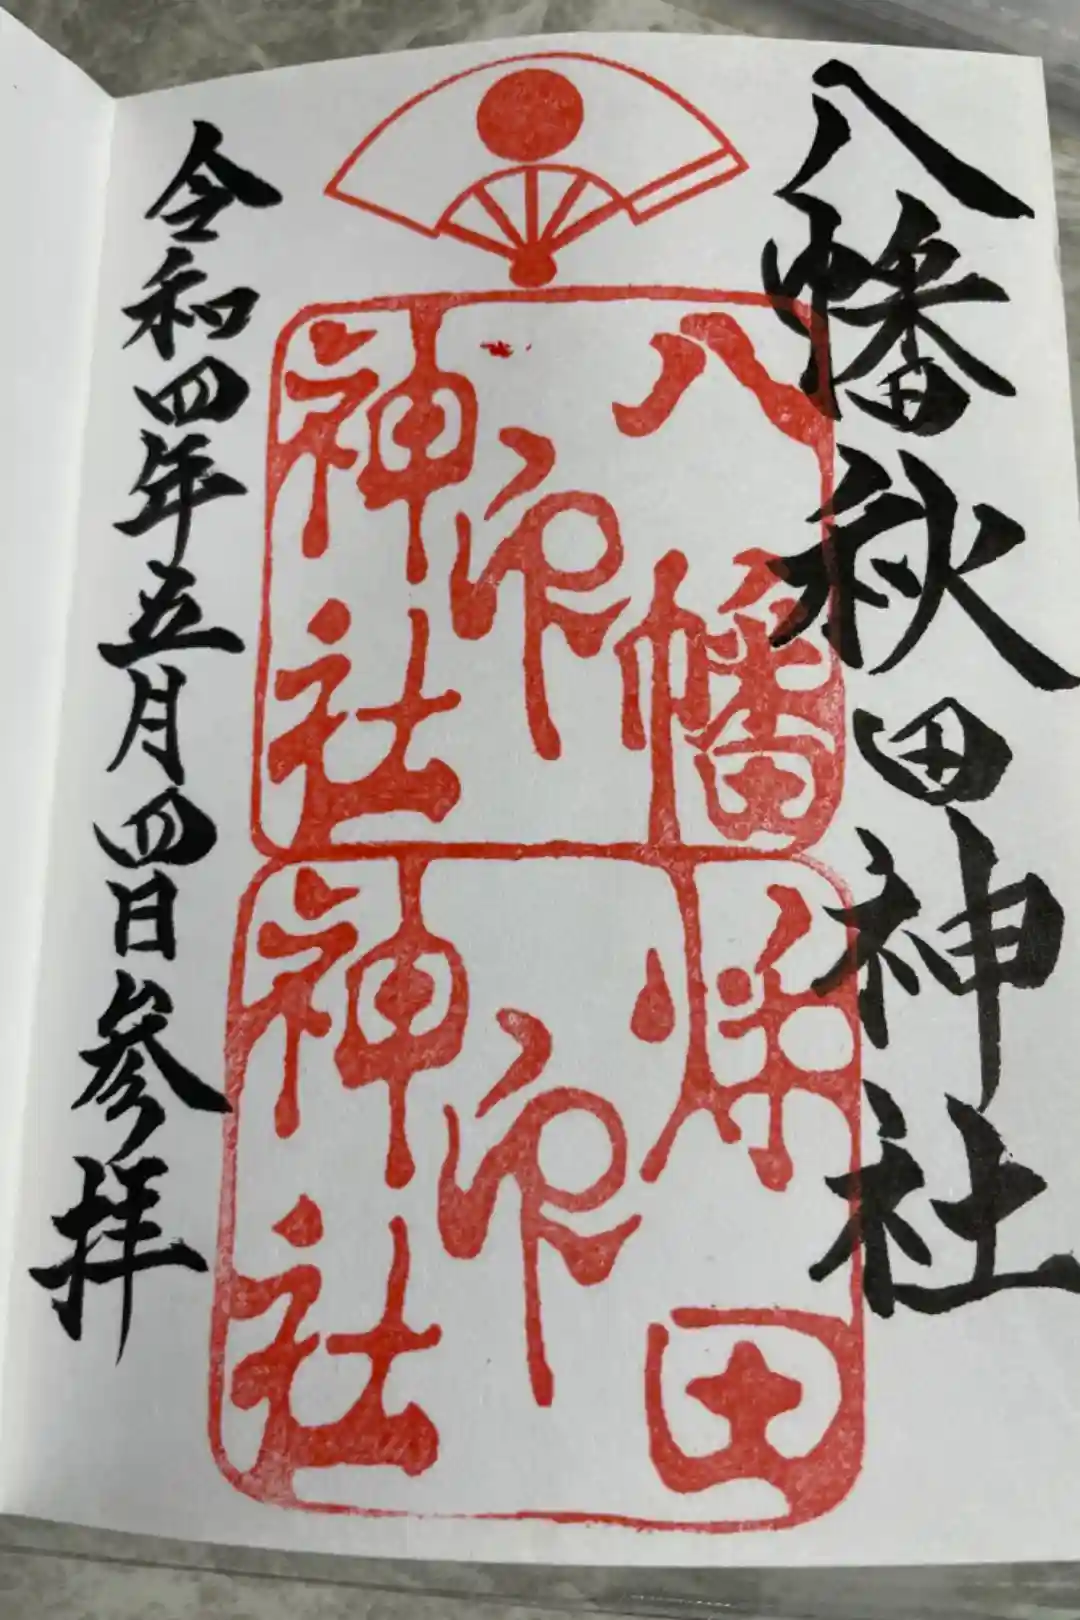 八幡秋田神社
八幡
印
神社
秋田
印
神社
令和四年五月四日参拝